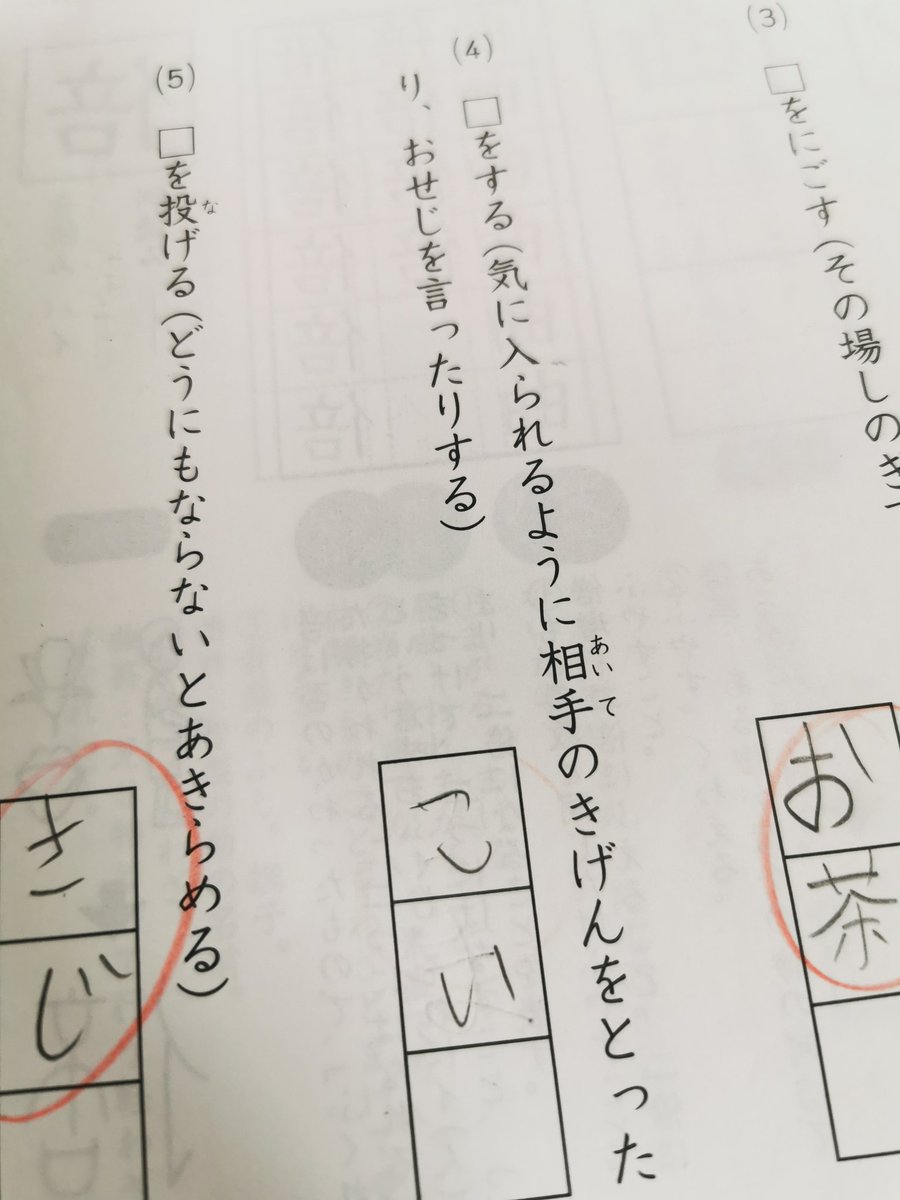 (3) □をにごす(その場しのぎ
お茶
(4) □をする(気に入られるように相手のきげんをとった
り、おせじを言ったりする)
こい
(5) □を投げる(どうにもならないとあきらめる)
きじ